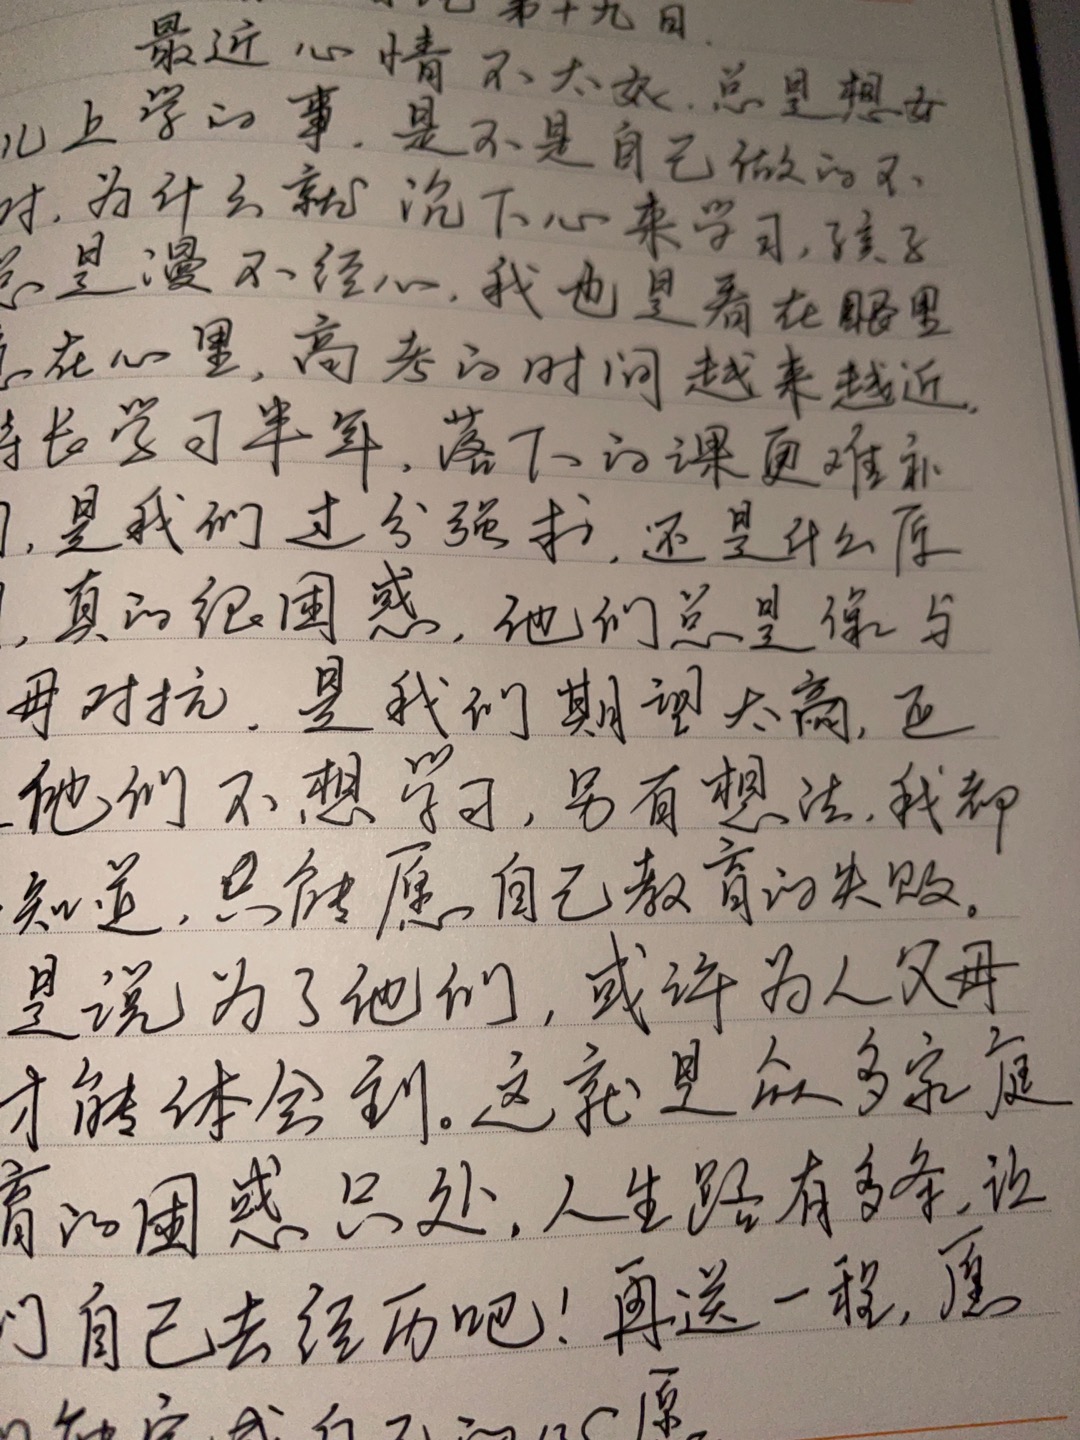 第十九日.
最近心情不太好.总是想女
儿上学的事.是不是自己做的不
对.为什么就沉下心来学习,孩子
总是漫不经心.我也是看在眼里
在心里,高考的时间越来越近.
特长学习半年,落下的课更难补
,是我们过分强求,还是什么原
,真的很困惑,他们总是像与
母对抗.是我们期望太高,还
他们不想学习,另有想法.我都
知道,只能愿自己教育的失败。
是说为了他们,或许为人父母
才能体会到。这就是众多家庭
育的困惑只处,人生路有多条,让
们自己去经历吧!再送一程,愿
完成自己的心愿